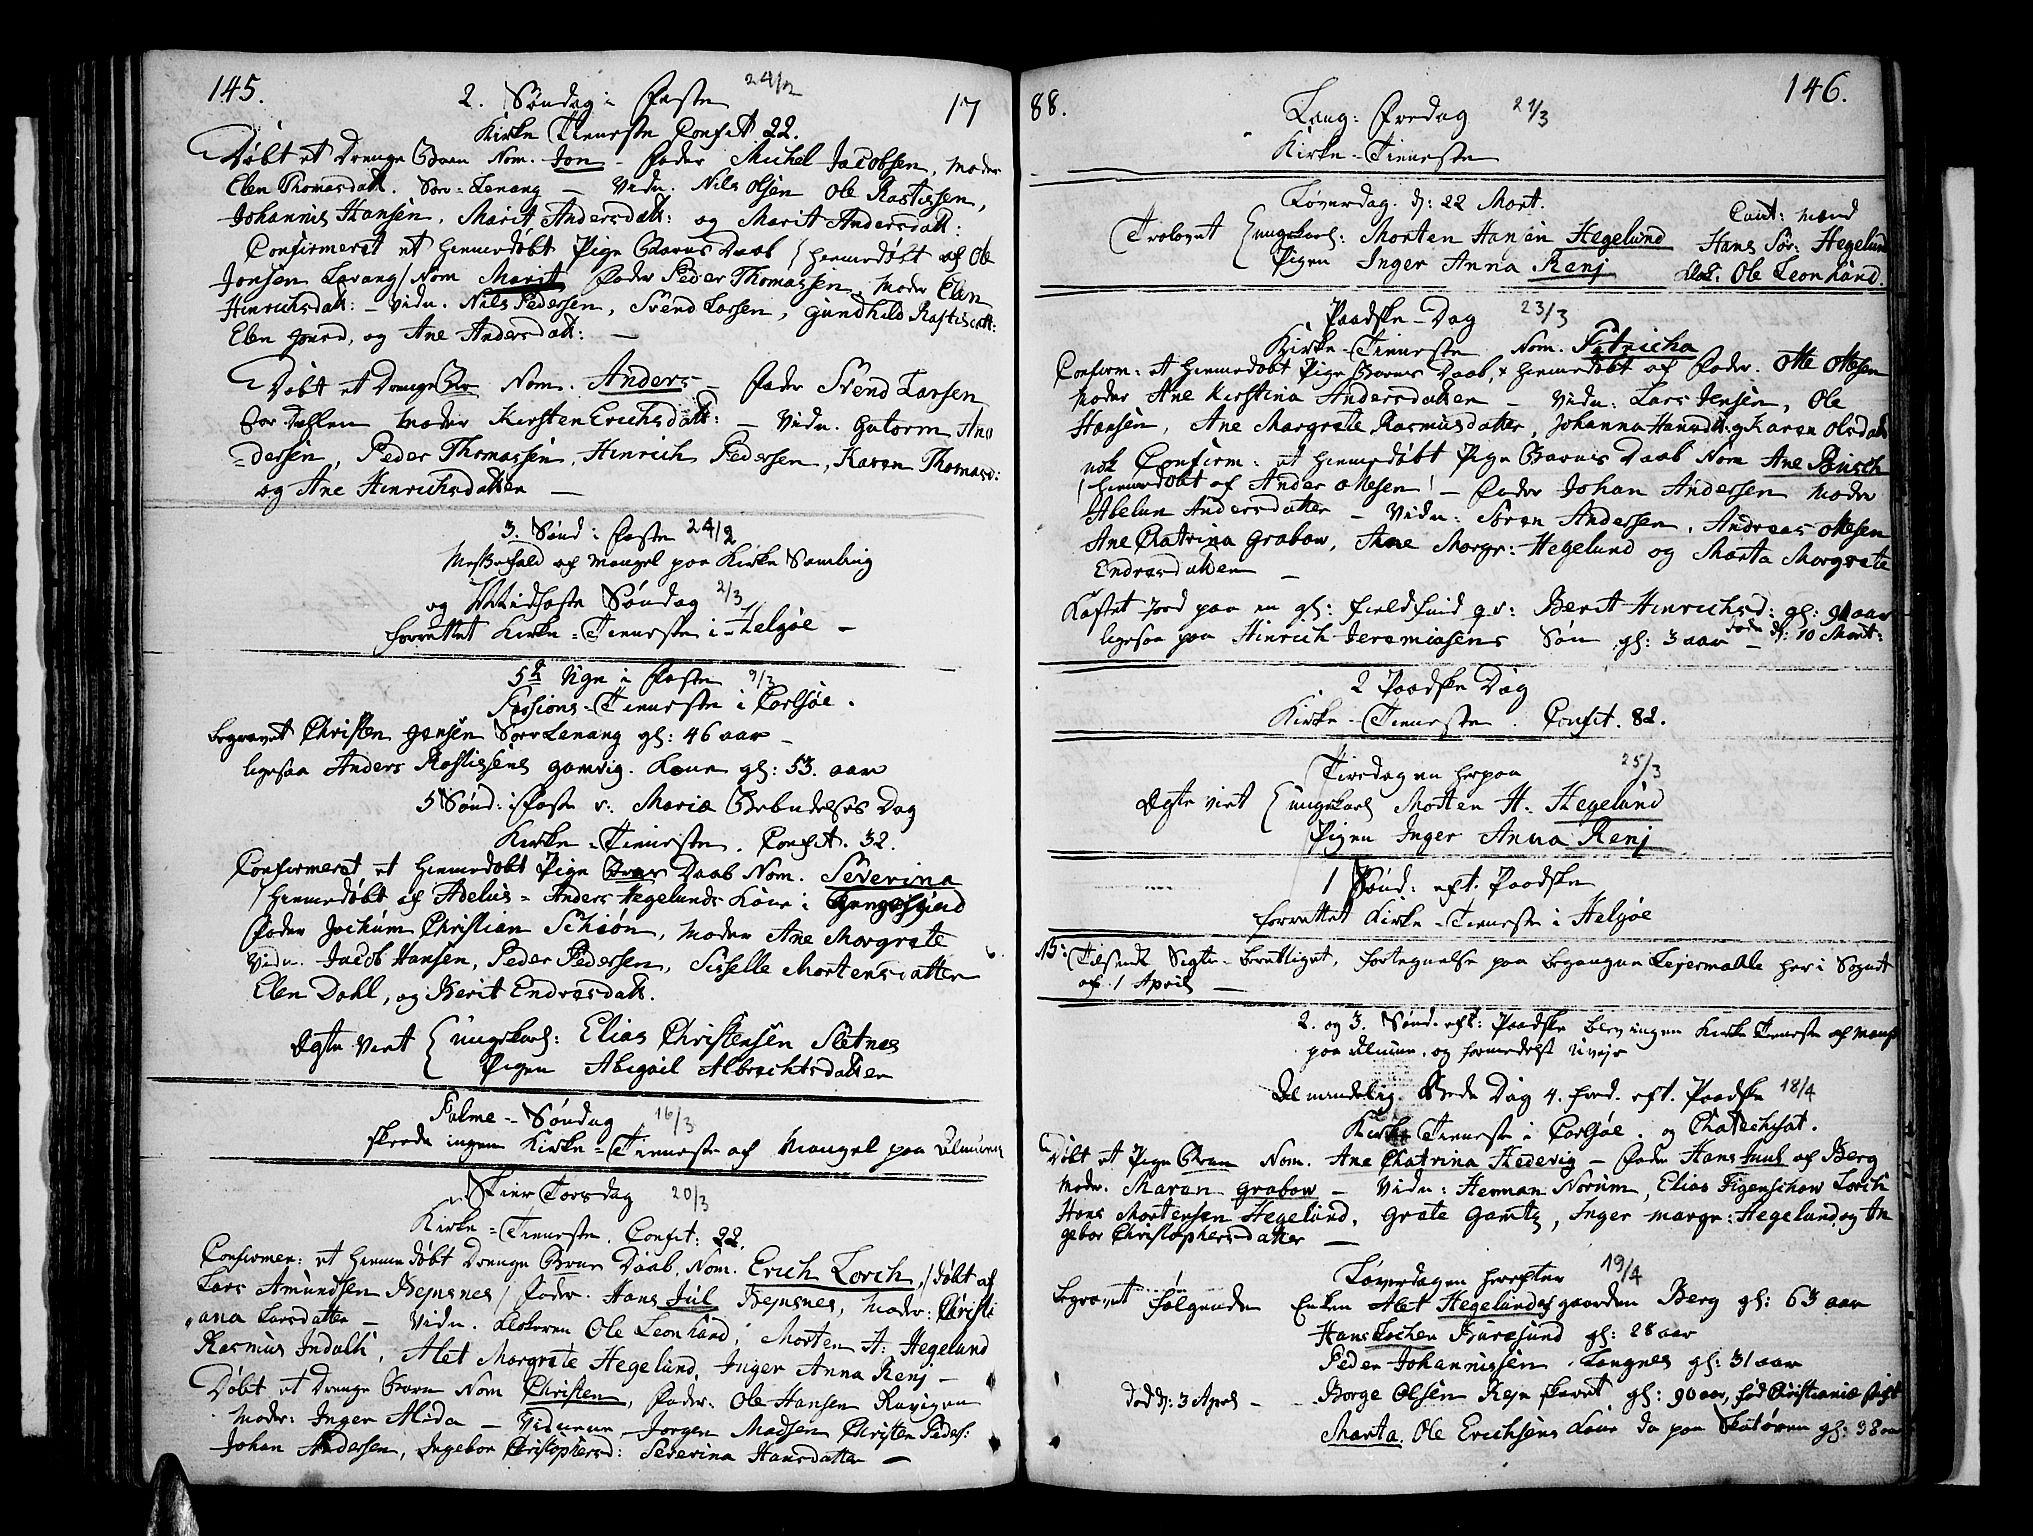 145.
2. Søndag i Faste 24/2 17
Kirke Tieneste Confit 22.
Døbt et Drenge Barn Nom. Jon - Fader Michel Jacobsen, Moder
Elen Thomasdatt. Sør-Lenang - Vidn. Nils Olsen Ole Rastiesen,
Johannis Hansen, Marit Andersdatt: og Marit Andersdatt:
Confirmeret et hiemmedøbt Pige Barns Daab / hiemmedøbt af Ole
Jonsen Lavang / Nom Marit Fader Peder Thomassen, Moder Elen
Hinrichsdatt: - Vidn. Nils Pedersen, Svend Larsen, Gundhild Rastisdatt:
Elen, og Ane Andersdatt: -
Døbt et Drenge Bar Nom. Anders - Fader Svend Larsen
Moder Kirsten Erichsdatt: - Vidn. Gutorm An-
=dersen, Peder Thomassen, Hinrich Pedersen, Karen Thomasd:
og Ane Hinrichsdatter -
3. Sønd: i Faste 24/2
Messefald af Mangel paa Kirke Samling
og Midfaste Søndag 2/3
forrettet Kirke-Tieneste i Helgøe -
5te Uge i Faste 9/3
Passions-Tieneste i Carlsøe.
Begravet Christen Jensen Sørlenang gl: 46 aar -
ligesaa Anders Rastiesens Gamvig. Kone gl: 53. aar
5 Sønd: i Faste v. Mariæ Bebudelses Dag
Kirke-Tieneste. Confit. 32.
Confirmeret et hiemmedøbt Pige Barns Daab Nom. Severina
/ hiemmedøbt af Adelus - Anders Hegelunds Kone i
Fader Jochum Christian Schiøn, Moder Ane Margrete
Vidn. Jacob Hansen, Peder Pedersen, Sisselle Mortensdatter
Elen Dahl, og Berit Endresdatt.
Ægte Viet { ungekarl: Elias Christensen Sletnes
Pigen Abigail Albrechtsdatter
Palme-Søndag 16/3
skeede ingen Kirke-Tieneste af Mangel paa Almuen
Skier Torsdag 20/3
Kirke-Tieneste. Confit: 22.
Confirmer: et hiemmedøbt Drenge Barns Daab. Nom. Erich Lorch, / døbt af
Lars Amundsen Bejnsnes / Fader. Hans Jul Bejnsnes, Moder: Christi-
ana Larsdatter - Vidn. Klokeren Ole Leonhard, Morten H: Hegelund
Rasmus Indahl, Alet Margrete Hegelund, Inger Anna Renj -
Døbt et Drenge Barn Nom Christen, Fader. Ole Hansen Ravigen
Moder: Inger Alida - Vidnerne Jørgen Madsen Christen Peders:
Johan Andersen, Ingebor Christophersd: Severina Hansdatter -
88. 146.
Lang: Fredag 21/3
Kirke-Tieneste
Løverdag. d: 22 Mart.
Trolovet { ungekarl: Morten Hansen Hegelund
Pigen Inger Anna Renj
Caut: Mænd
Hans Sør: Hegelund
klok: Ole Leonhard.
Paaske-Dag 23/3
Kirke-Tieneste Nom. Petricha
Confirm: et hiemmedøbt Pige Barns Daab, hiemmedøbt af Fader. Otte Ottesen
Moder Ane Kirstina Andersdatter - Vidn: Lars Jensen, Ole
Hansen, Ane Margrete Rasmusdatter, Johanna Hansdt: og Karen Olsdatt
nok Confirm: et hiemmedøbt Pige Barns Daab Nom Ane
/ hiemmedøbt af Anders Olesen / - Fader Johan Andersen Moder
Abelun Andersdatter - Vidn: Søren Andersen, Andreas Olesen
Ane Chatrina Grabow, Ane Margr: Hegelund og Marta Margrete
Endresdatter -
Kastet Jord paa en gl: fieldfind qv: Berit Hinrichsd: gl: 91 aar
ligesaa paa Hinrich Jeremiasens Søn gl: 3 aar - døde d: 10 Mart:
2 Paaske Dag
Kirke-Tieneste. Confit. 82.
Tirsdagen herpaa 25/3
Ægte viet { ungekarl Morten H. Hegelund
Pigen Inger Anna Renj
1 Sønd: eft. Paaske
forrettet Kirke-Tieneste i Helgøe
NB: Tilsendt Sigte-Berettiget, Fortegnelse paa begangne Lejermaalle her i Sognet
af 1 April -
2. og 3. Sønd. eft: Paaske blev ingen Kirke Tieneste af Mangel
paa Almue, og formedelst Uvejr
Almindelig Bede Dag 4. fred. eft. Paaske 18/4
Kirke Tieneste i Carlsøe og Chatechisat.
Døbt et Pige Barn Nom. Ane Chatrina Hedevig - Fader Hans Juul af Berg
Moder. Maren Grabow - Vidn: Herman Norum, Elias Figenschow Lorch
Hans Mortensen Hegelund, Grete Gamtz, Inger Margr: Hegelund og In-
gebor Christophersdatter -
Løverdagen herefter 19/4
Begravet følgende Enken Alet Hegelund af gaarden Berg gl: 63 aar
Hans Lochen Buresund gl: 28 aar
Peder Johannissen Langnes gl: 31 aar
Død d: 3 April - Børge Olsen Rejnskaret gl: 90 aar, fød Christianiæ stift
Marta Ole Erichsens Kone Da paa Skatøren gl: 38 aar